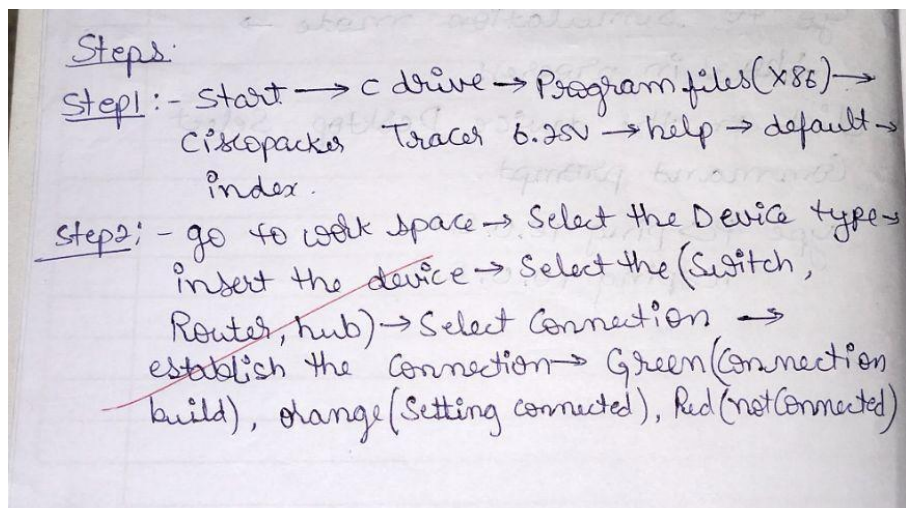 Steps.
Step1 :- Start → C drive → Program files(x86) →
Ciscopacker Tracer 6.2SV → help → default →
index.
Step2 :- go to work space → Select the Device type →
insert the device → Select the (Switch,
Router, hub) → Select Connection →
establish the Connection → Green (Connection
build), orange (Setting connected), Red (not Connected)